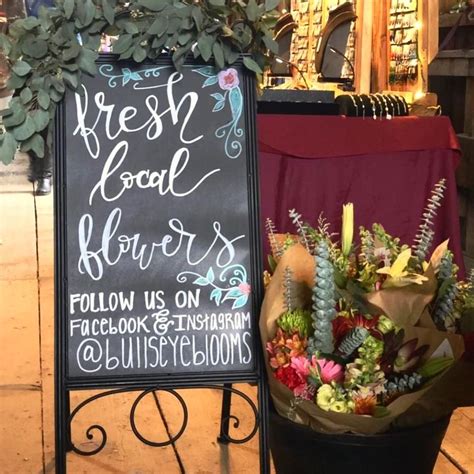 fresh
local
flowers
FOLLOW US ON
FACEBOOK & INSTAGRAM
@bullseyeblooms